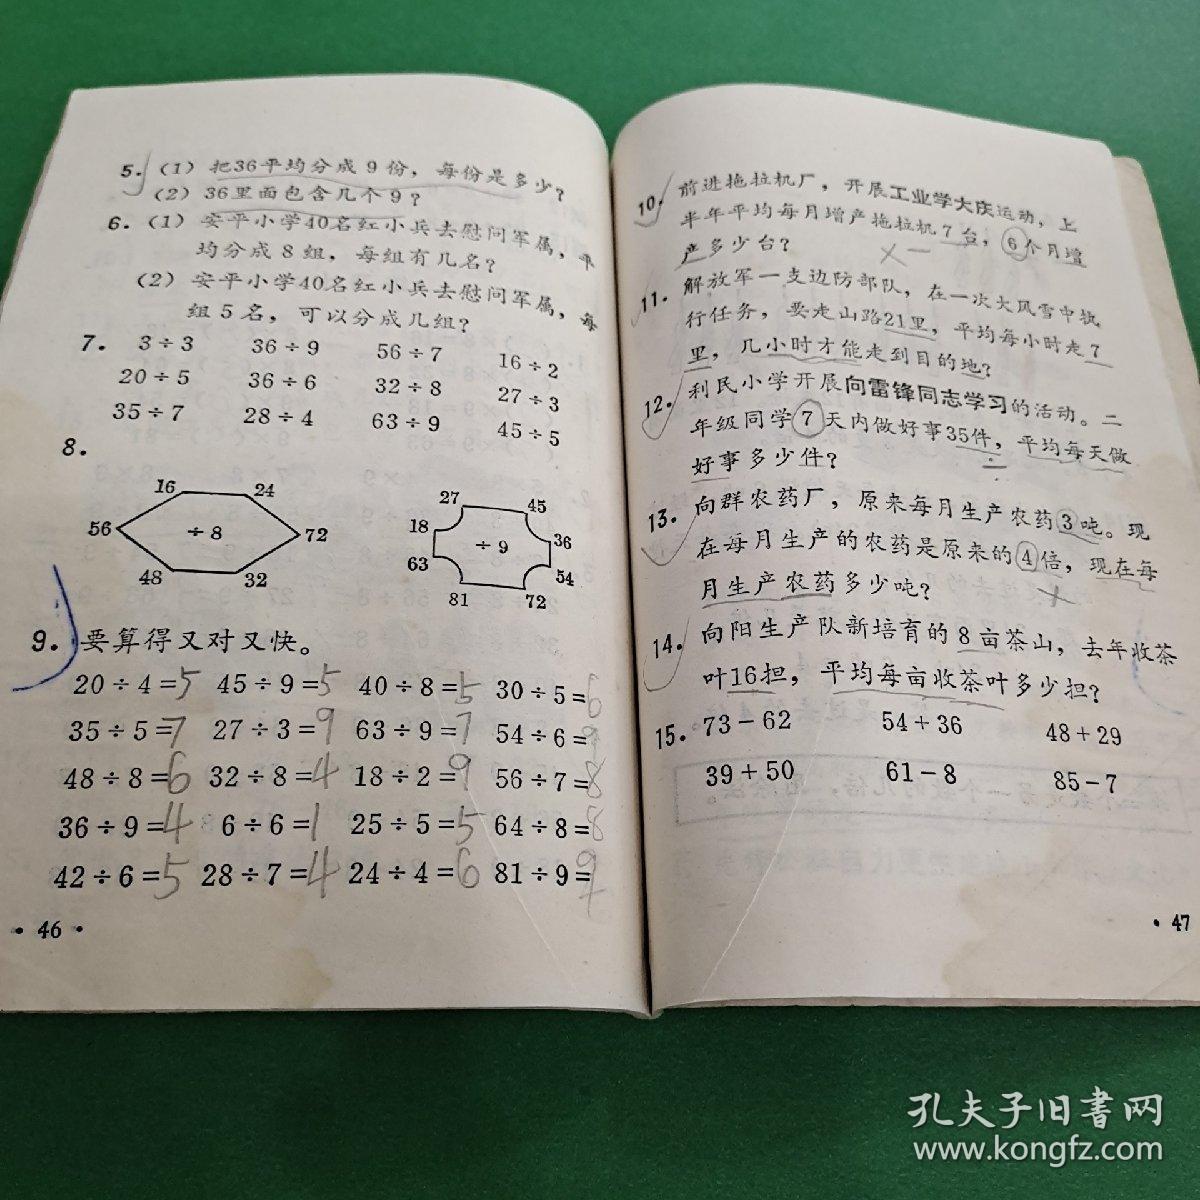 5. (1) 把36平均分成 9 份，每份是多少？
(2) 36里面包含几个 9？
6. (1) 安平小学40名红小兵去慰问军属，平
均分成 8 组，每组有几名？
(2) 安平小学40名红小兵去慰问军属，每
组 5 名，可以分成几组？
7. 3÷3 36÷9 56÷7 16÷2
20÷5 36÷6 32÷8 27÷3
35÷7 28÷4 63÷9 45÷5
8.
16 24
56 ÷8 72
48 32
27 45
18 ÷9 36
63 54
81 72
9. 要算得又对又快。
20÷4=5 45÷9=5 40÷8=5 30÷5=6
35÷5=7 27÷3=9 63÷9=7 54÷6=9
48÷8=6 32÷8=4 18÷2=9 56÷7=8
36÷9=4 6÷6=1 25÷5=5 64÷8=8
42÷6=5 28÷7=4 24÷4=6 81÷9=9
· 46 ·
10. 前进拖拉机厂，开展工业学大庆运动，上
半年平均每月增产拖拉机 7 台，6个月增
产多少台？
×—
11. 解放军一支边防部队，在一次大风雪中执
行任务，要走山路21里，平均每小时走 7
里，几小时才能走到目的地？
12. 利民小学开展向雷锋同志学习的活动。二
年级同学 7 天内做好事35件，平均每天做
好事多少件？
÷
13. 向群农药厂，原来每月生产农药 3 吨。现
在每月生产的农药是原来的 4 倍，现在每
月生产农药多少吨？
×
14. 向阳生产队新培育的 8 亩茶山，去年收茶
叶16担，平均每亩收茶叶多少担？
15. 73－62 54＋36 48＋29
39＋50 61－8 85－7
· 47
孔夫子旧书网
www.kongfz.com